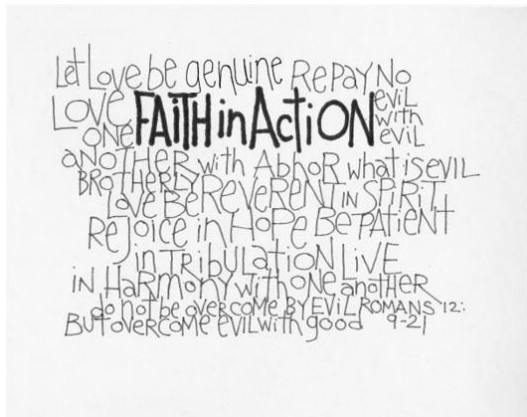 Let Love be genuine RePAY No
LOVE FAiTH in ActiON evil
ONE with
evil
aNOTHER with AbhoR what is EVIL
BROTHERLY REVERENT IN SPiRiT
Love Be
Rejoice in HoPe Be PAtient
in TRibULAtioN LiVE
iN HaRmoNy with ONe anotHER
do not be overcome BY EViL ROMANS 12:
But overcome evil with good 9-21